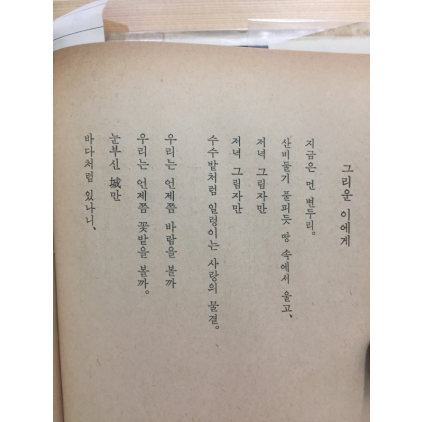 그리운 이에게
지금은 먼 변두리。
산비둘기 풀피듯 땅 속에서 울고、
저녁 그림자만
저녁 그림자만
수수밭처럼 일렁이는 사랑의 물결。
우리는 언제쯤 바람을 볼까
우리는 언제쯤 꽃밭을 볼까。
눈부신 城만
바다처럼 있나니、